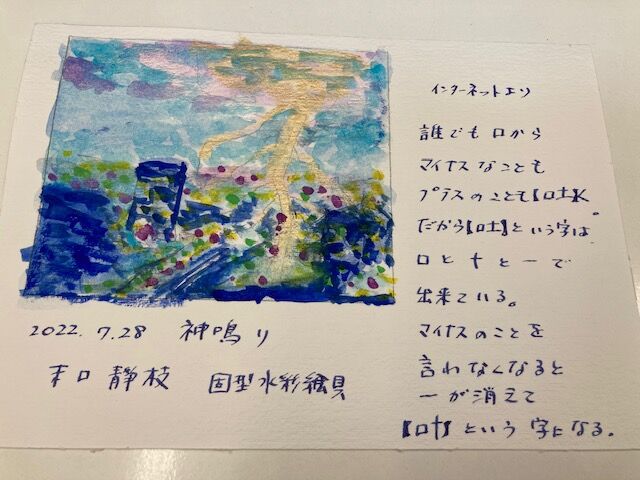 インターネットより
誰でも口から
マイナスなことも
プラスのことも【吐】く。
だから【吐】という字は
口と十と一で
出来ている。
マイナスのことを
言わなくなると
一が消えて
【叶】という字になる。
2022.7.28 神鳴り
末口 静枝 固型水彩絵具